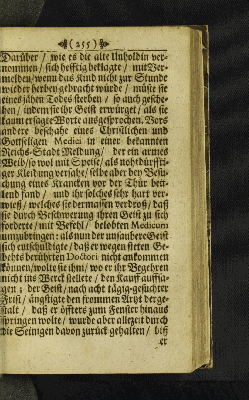 (255)
Darüber / wie es die alte Unholdin ver-
nommen / sich hefftig beklagte / mit Ver-
melden / wenn das Kind nicht zur Stunde
wider herben gebracht würde / müste sie
eines jähen Todes sterben / so auch gesche-
hen / indem sie ihr Geist erwürget / als sie
kaum ersagte Worte ausgesprochen. Vors
andere beschahe eines Christlichen und
Gottseligen Medici in einer bekannten
Reichs-Stadt Meldung / der ein armes
Weib / so wol mit Speise / als nohtdürffti-
ger Kleidung versahe / selbe aber bey Besu-
chung eines Krancken vor der Thür bett-
lend fand / und ihr solches sehr hart ver-
wieß / welches sie dermassen verdroß / daß
sie durch Beschwerung ihren Geist zu sich
forderte / mit Befehl / belobten Medicum
umzubringen : als nun der unsaubere Geist
sich entschuldigte / daß er wegen steten Ge-
behts berührten Doctori nicht ankommen
können / wolte sie ihm / wo er ihr Begehren
nicht ins Werck stellete / den Kauff auffsa-
gen ; der Geist / nach acht tägig-gesuchter
Frist / ängstigte den frommen Artzt derge-
stalt / daß er öffters zum Fenster hinaus
springen wolte / wurde aber allezeit durch
die Seinigen davon zurück gehalten / biß
er